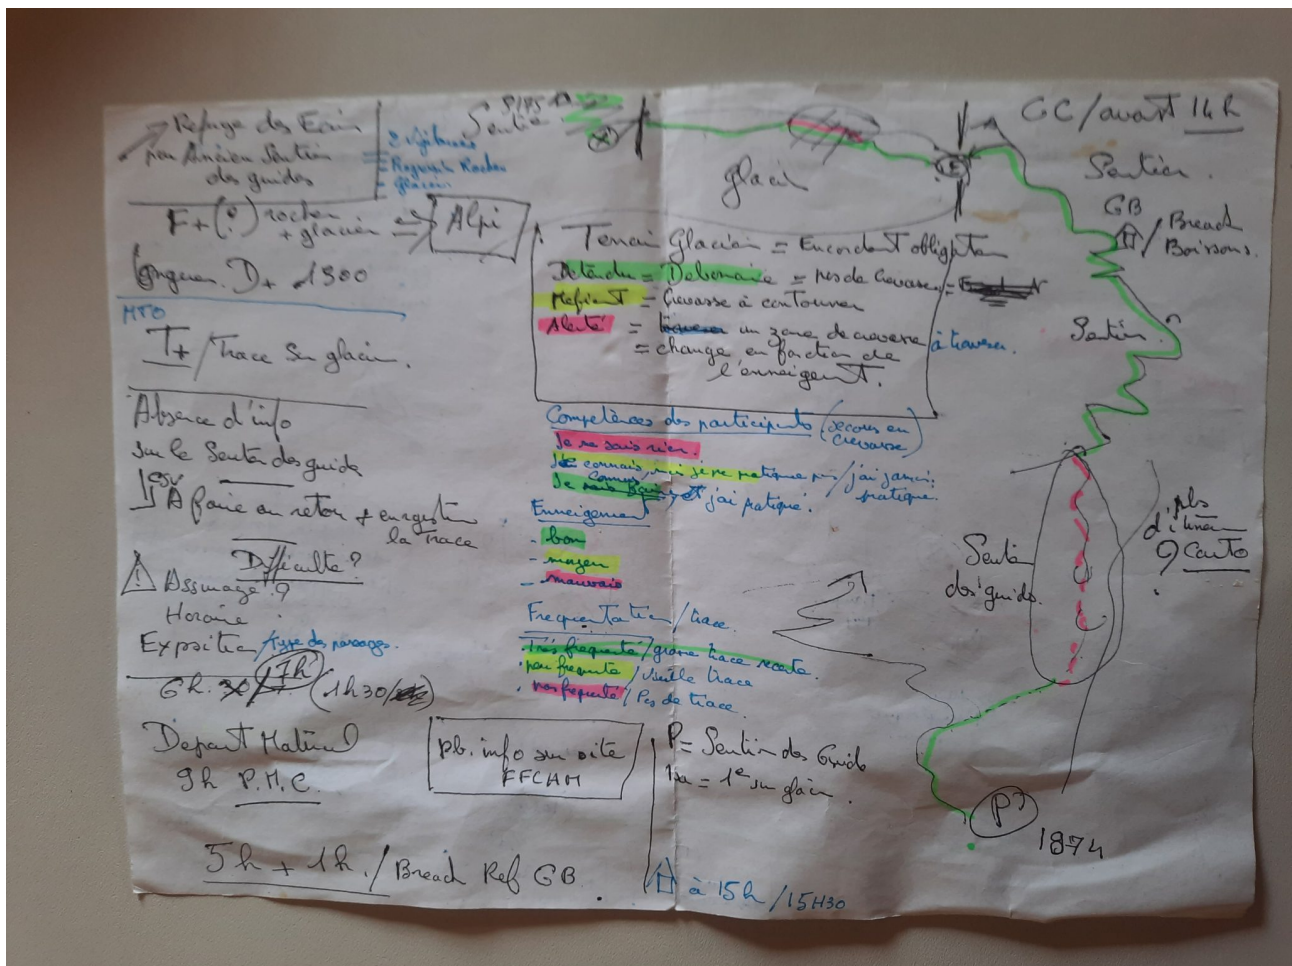 Refuge des Ecrins
par Ancien Sentier
des guides
2 vigilances
- Rocher
- glacier
F + (?) rocher
+ glacier
Alpi
longueur D+ 1300
MTO
T+ / Trace sur glacier.
Absence d'info
sur le Sentier des guides
A faire au retour + enregistrer
la trace
Difficulté ?
Assurage ?
Horaire
Exposition / type de passages.
6h. 7h (1h30/
Départ Matinal
9h P.M.C.
5h + 1h / Breach Ref GB.
pb. info sur site
FFCAM
Sentier
glacier
Terrain Glacier = Encordement obligatoire
Détendu = Debonaire = pas de Crevasse =
Mefiant = Crevasse à contourner
Alerté = un zone de crevasse à traverser.
= change en fonction de
l'enneigement.
Compétences des participants (secours en
crevasse)
Je ne sais rien.
Je connais, mais je ne pratique pas / j'ai jamais
pratiqué.
Je connais et j'ai pratiqué.
Enneigement
- bon
- moyen
- mauvais
Frequentation / trace.
Très frequenté / grosse trace recente.
peu frequenté / vieille trace
pas frequenté / Pas de trace.
P = Sentier des Guides
= 1e sur glacier.
à 15h / 15H30
GC / avant 14h
Sentier.
GB
/ Breach
Boissons.
Sentier
Sentier
des guides.
pls
d'itinéraire
? Carto
P?
1874